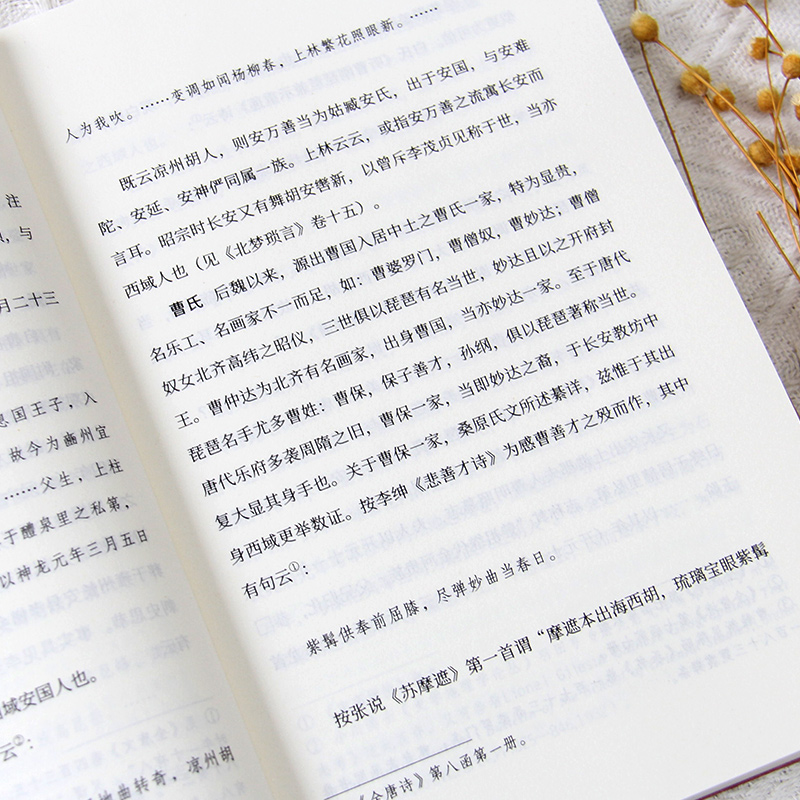 注
，与
月二十三
息国王子，入
故今为豳州宜
……父生，上柱
于醴泉里之私第，
以神龙元年三月五日
域安国人也。
云②：
曲转奇，凉州胡
人为我吹。……变调如闻杨柳春，上林繁花照眼新。……
既云凉州胡人，则安万善当为姑臧安氏，出于安国，与安难
陀、安延、安神俨同属一族。上林云云，或指安万善之流寓长安而
言耳。昭宗时长安又有舞胡安辔新，以曾斥李茂贞见称于世，当亦
西域人也（见《北梦琐言》卷十五）。
曹氏 后魏以来，源出曹国入居中土之曹氏一家，特为显贵，
名乐工、名画家不一而足，如：曹婆罗门，曹僧奴，曹妙达；曹僧
奴女北齐高纬之昭仪，三世俱以琵琶有名当世，妙达且以之开府封
王。曹仲达为北齐有名画家，出身曹国，当亦妙达一家。至于唐代
琵琶名手尤多曹姓：曹保，保子善才，孙纲，俱以琵琶著称当世。
唐代乐府多袭周隋之旧，曹保一家，当即妙达之裔，于长安教坊中
复大显其身手也。关于曹保一家，桑原氏文所述綦详，兹惟于其出
身西域更举数证。按李绅《悲善才诗》为感曹善才之殁而作，其中
有句云①：
紫髯供奉前屈膝，尽弹妙曲当春日。
按张说《苏摩遮》第一首谓“摩遮本出海西胡，琉璃宝眼紫髯
《全唐诗》第八函第一册。